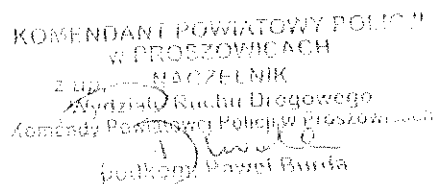 KOMENDANT POWIATOWY POLICJI
w PROSZOWICACH
z up. NACZELNIK
Wydziału Ruchu Drogowego
Komendy Powiatowej Policji w Proszowicach
podkom. Paweł Burda